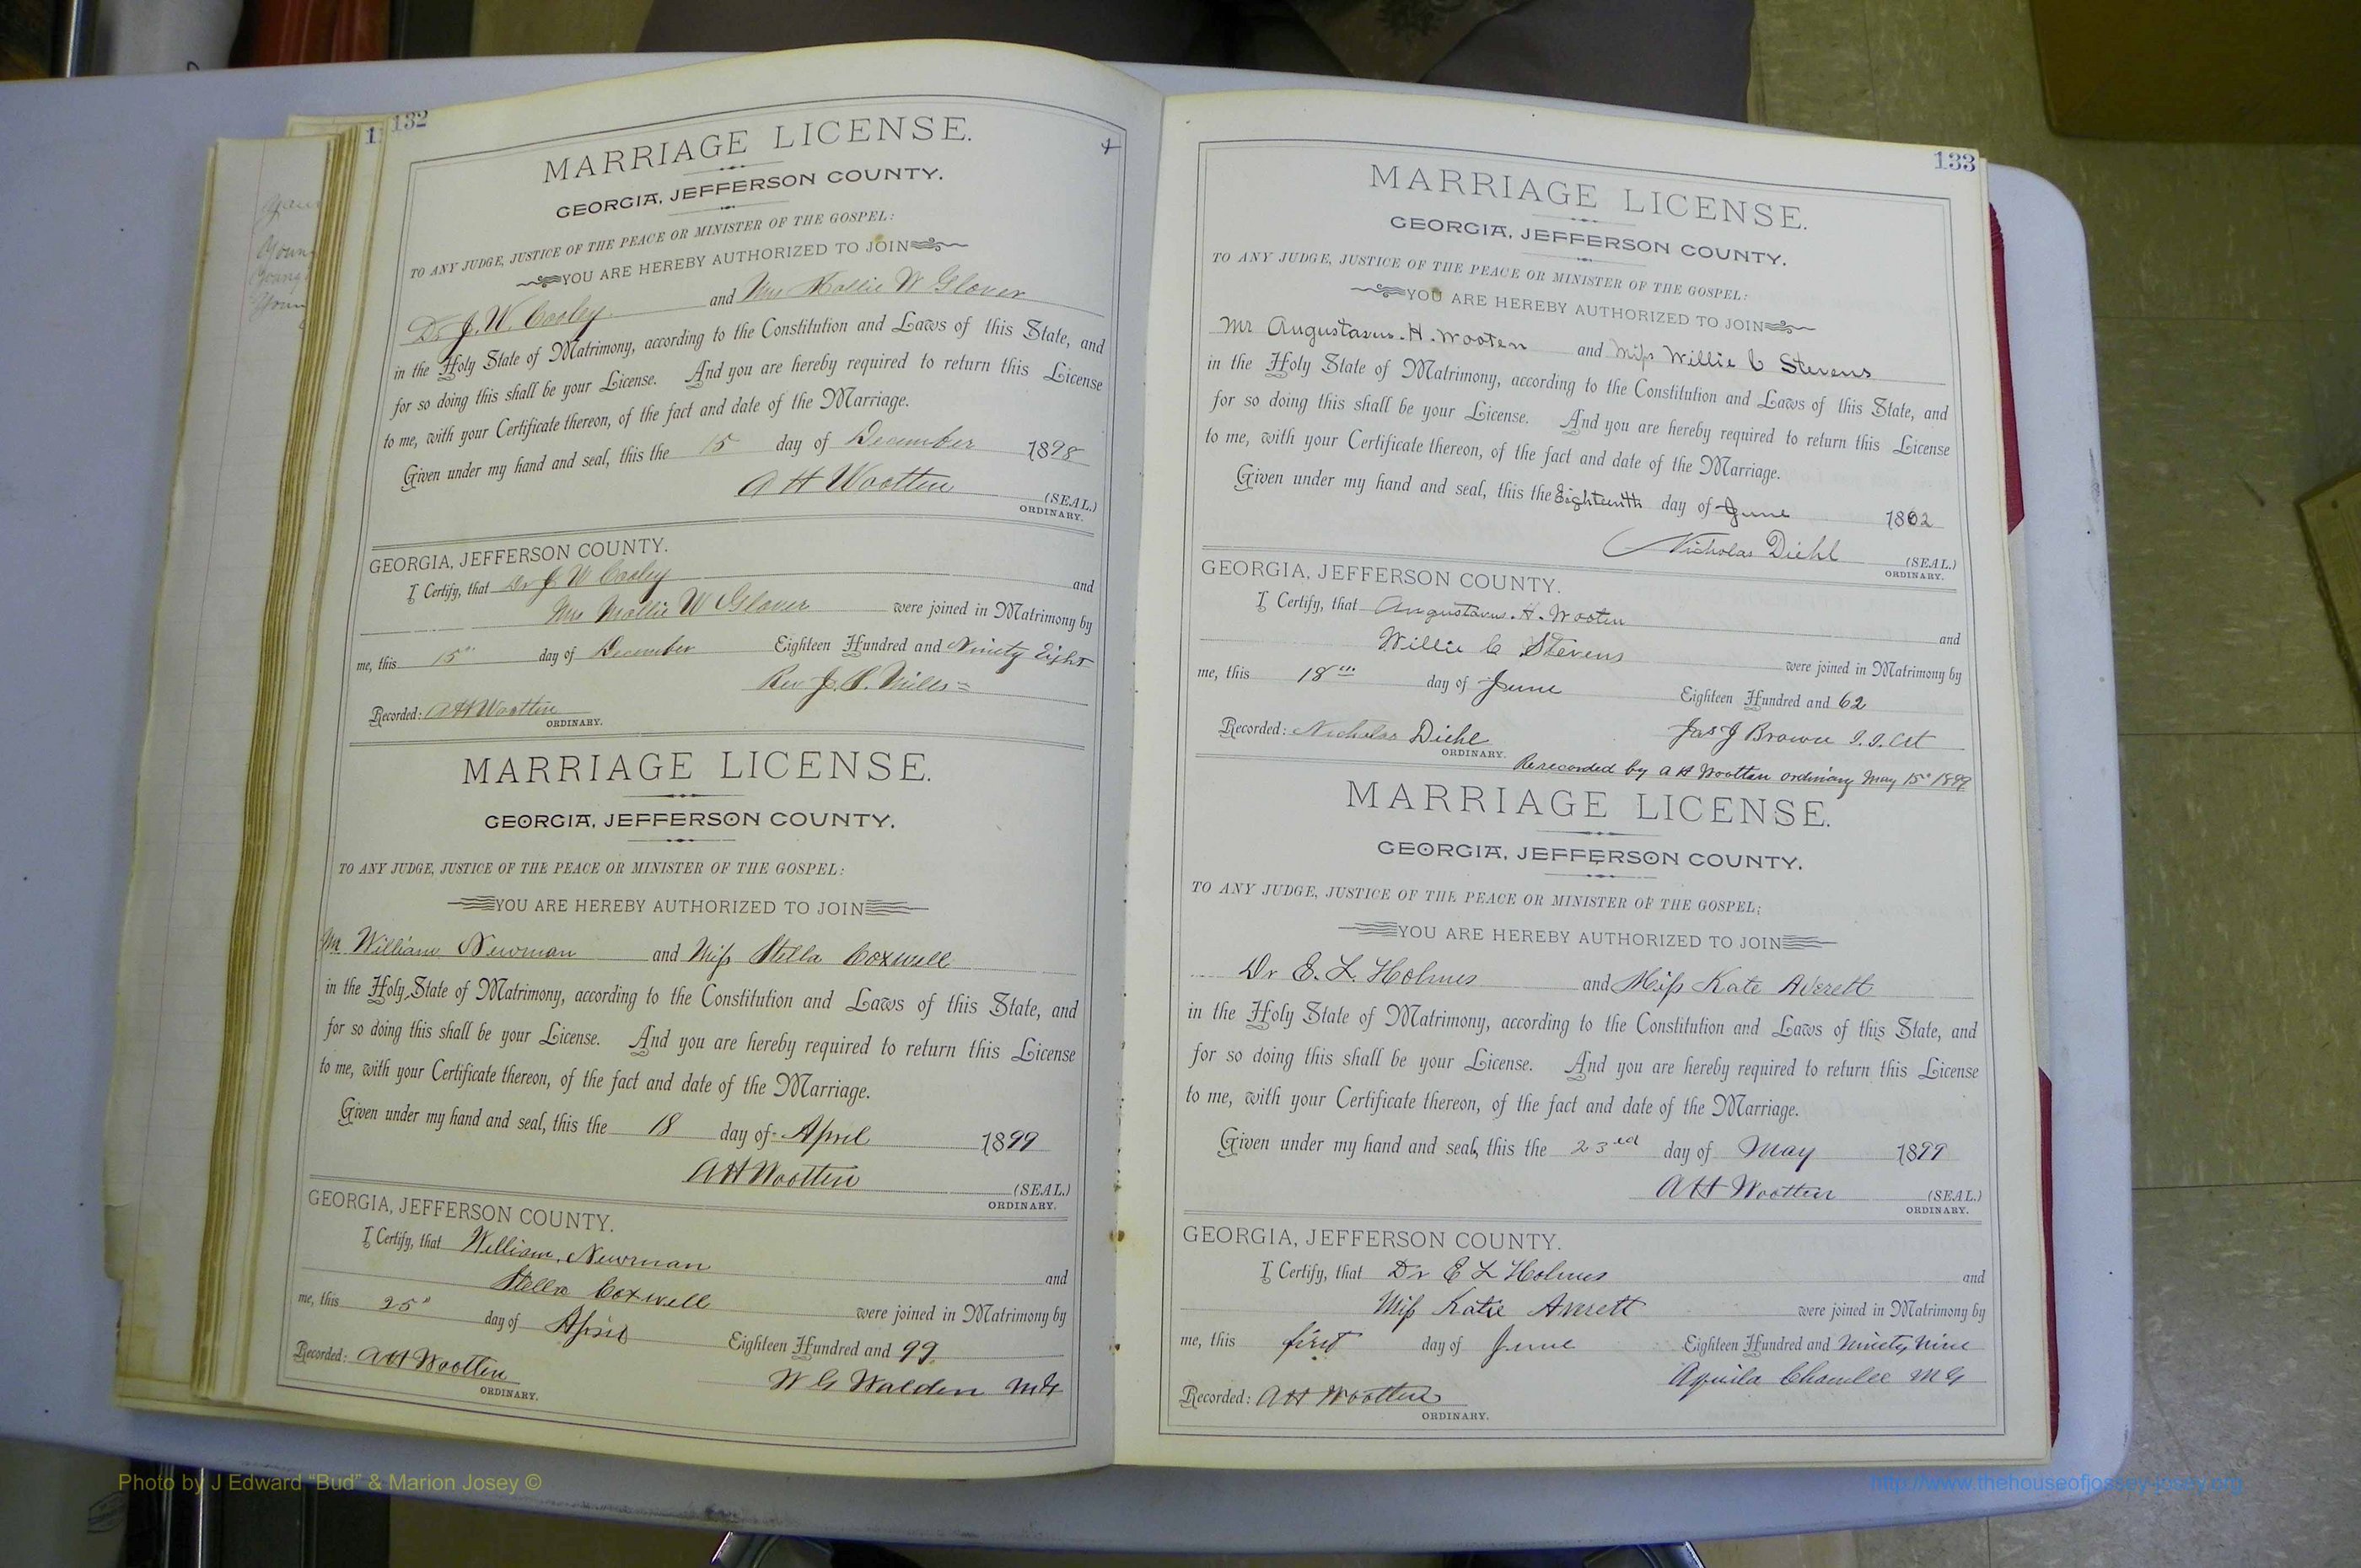 132
MARRIAGE LICENSE.
GEORGIA, JEFFERSON COUNTY.
TO ANY JUDGE, JUSTICE OF THE PEACE OR MINISTER OF THE GOSPEL:
YOU ARE HEREBY AUTHORIZED TO JOIN
Dr J. W. Cooley and Mrs Mollie W Glover
in the Holy State of Matrimony, according to the Constitution and Laws of this State, and
for so doing this shall be your License. And you are hereby required to return this License
to me, with your Certificate thereon, of the fact and date of the Marriage.
Given under my hand and seal, this the 15 day of December 1898
A H Wootten (SEAL.)
ORDINARY.
GEORGIA, JEFFERSON COUNTY.
I Certify, that Dr J W Cooley and
Mrs Mollie W Glover were joined in Matrimony by
me, this 15" day of December Eighteen Hundred and Ninety Eight
Rev J. P. Mills
Recorded: A H Wootten
ORDINARY.
MARRIAGE LICENSE.
GEORGIA, JEFFERSON COUNTY.
TO ANY JUDGE, JUSTICE OF THE PEACE OR MINISTER OF THE GOSPEL:
YOU ARE HEREBY AUTHORIZED TO JOIN
Mr William Newman and Miss Stella Coxwell
in the Holy State of Matrimony, according to the Constitution and Laws of this State, and
for so doing this shall be your License. And you are hereby required to return this License
to me, with your Certificate thereon, of the fact and date of the Marriage.
Given under my hand and seal, this the 18 day of April 1899
A H Wootten (SEAL.)
ORDINARY.
GEORGIA, JEFFERSON COUNTY.
I Certify, that William Newman and
Stella Coxwell were joined in Matrimony by
me, this 25" day of April Eighteen Hundred and 99
W G Walden M G
Recorded: A H Wootten
ORDINARY.
133
MARRIAGE LICENSE.
GEORGIA, JEFFERSON COUNTY.
TO ANY JUDGE, JUSTICE OF THE PEACE OR MINISTER OF THE GOSPEL:
YOU ARE HEREBY AUTHORIZED TO JOIN
Mr Augustavus. H. Wooten and Miss Willie C Stevens
in the Holy State of Matrimony, according to the Constitution and Laws of this State, and
for so doing this shall be your License. And you are hereby required to return this License
to me, with your Certificate thereon, of the fact and date of the Marriage.
Given under my hand and seal, this the Eighteenth day of June 1862
Nicholas Diehl (SEAL.)
ORDINARY.
GEORGIA, JEFFERSON COUNTY.
I Certify, that Augustavus. H. Wooten and
Willie C Stevens were joined in Matrimony by
me, this 18th day of June Eighteen Hundred and 62
Jas J Brown J. J. Ct
Recorded: Nicholas Diehl
ORDINARY.
Rerecorded by A H Wootten ordinary May 15" 1899
MARRIAGE LICENSE.
GEORGIA, JEFFERSON COUNTY.
TO ANY JUDGE, JUSTICE OF THE PEACE OR MINISTER OF THE GOSPEL:
YOU ARE HEREBY AUTHORIZED TO JOIN
Dr E. L. Holmes and Miss Kate Averett
in the Holy State of Matrimony, according to the Constitution and Laws of this State, and
for so doing this shall be your License. And you are hereby required to return this License
to me, with your Certificate thereon, of the fact and date of the Marriage.
Given under my hand and seal, this the 23rd day of May 1899
A H Wootten (SEAL.)
ORDINARY.
GEORGIA, JEFFERSON COUNTY.
I Certify, that Dr E L Holmes and
Miss Katie Averett were joined in Matrimony by
me, this first day of June Eighteen Hundred and Ninety Nine
Aquila Chamlee M G
Recorded: A H Wootten
ORDINARY.
Photo by J Edward "Bud" & Marion Josey ©
http://www.thehouseofjossey-josey.org